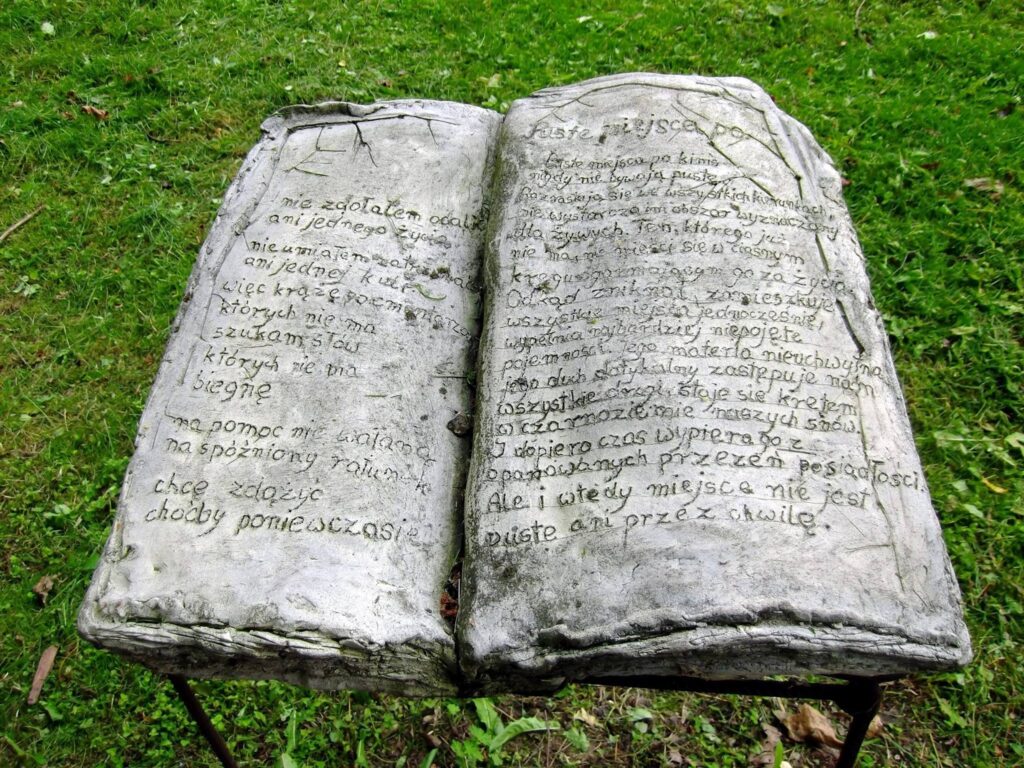 nie zdołałem ocalić
ani jednego życia
nie umiałem zatrzymać
ani jednej kuli
więc krążę po cmentarzach
których nie ma
szukam słów
których nie ma
biegnę
na pomoc nie wołaną
na spóźniony ratunek
chcę zdążyć
choćby poniewczasie
Puste miejsca po
Puste miejsca po kimś
nigdy nie bywają puste.
się we wszystkich kierunkach,
nie wystarcza im obszar wyznaczony
dla żywych. Ten, którego już
nie ma, nie mieści się w ciasnym
kręgu oznajmiającym go za życia.
Odkąd zniknął, zamieszkuje
wszystkie miejsca jednocześnie,
wypełnia najbardziej niepojęte
pojemności. Jego materia nieuchwytna
jego duch dotykalny zastępuje nam
wszystkie drogi, staje się kretem
w czarnoziemie naszych snów.
I dopiero czas wypiera go z
opanowanych przezeń posiadłości.
Ale i wtedy miejsce nie jest
puste ani przez chwilę.